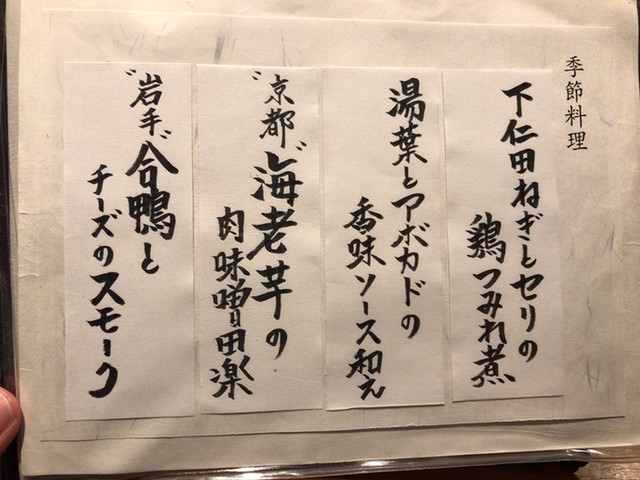 季節料理
下仁田ねぎとセリの
鶏つみれ煮
湯葉とアボカドの
香味ソース和え
"京都"海老芋の
肉味噌田楽
"岩手"合鴨と
チーズのスモーク